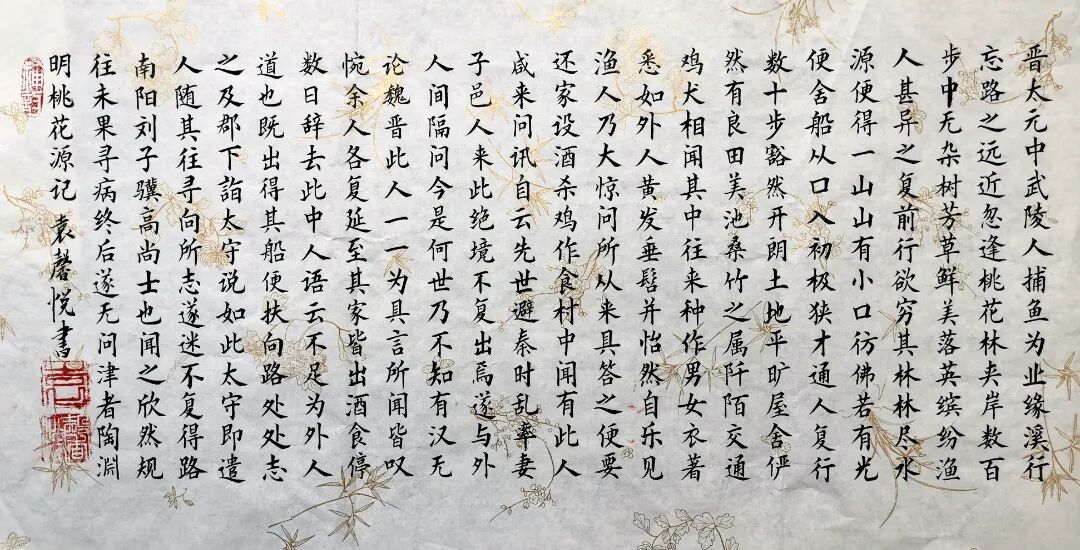 晋太元中武陵人捕鱼为业缘溪行
忘路之远近忽逢桃花林夹岸数百
步中无杂树芳草鲜美落英缤纷渔
人甚异之复前行欲穷其林林尽水
源便得一山山有小口彷佛若有光
便舍船从口入初极狭才通人复行
数十步豁然开朗土地平旷屋舍俨
然有良田美池桑竹之属阡陌交通
鸡犬相闻其中往来种作男女衣著
悉如外人黄发垂髫并怡然自乐见
渔人乃大惊问所从来具答之便要
还家设酒杀鸡作食村中闻有此人
咸来问讯自云先世避秦时乱率妻
子邑人来此绝境不复出焉遂与外
人间隔问今是何世乃不知有汉无
论魏晋此人一一为具言所闻皆叹
惋余人各复延至其家皆出酒食停
数日辞去此中人语云不足为外人
道也既出得其船便扶向路处处志
之及郡下诣太守说如此太守即遣
人随其往寻向所志遂迷不复得路
南阳刘子骥高尚士也闻之欣然规
往未果寻病终后遂无问津者陶淵
明桃花源记 袁馨悦書